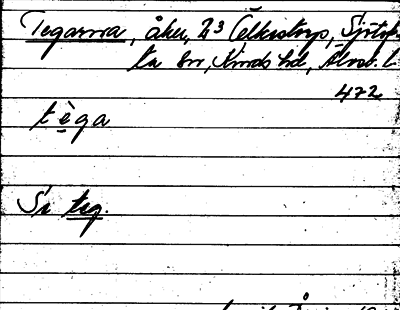 Tegarna, åker, 2³ Älkistorp, Sjötof-
ta sn, Kinds hd, Älvsb. l.
472
tèga
Se teg.